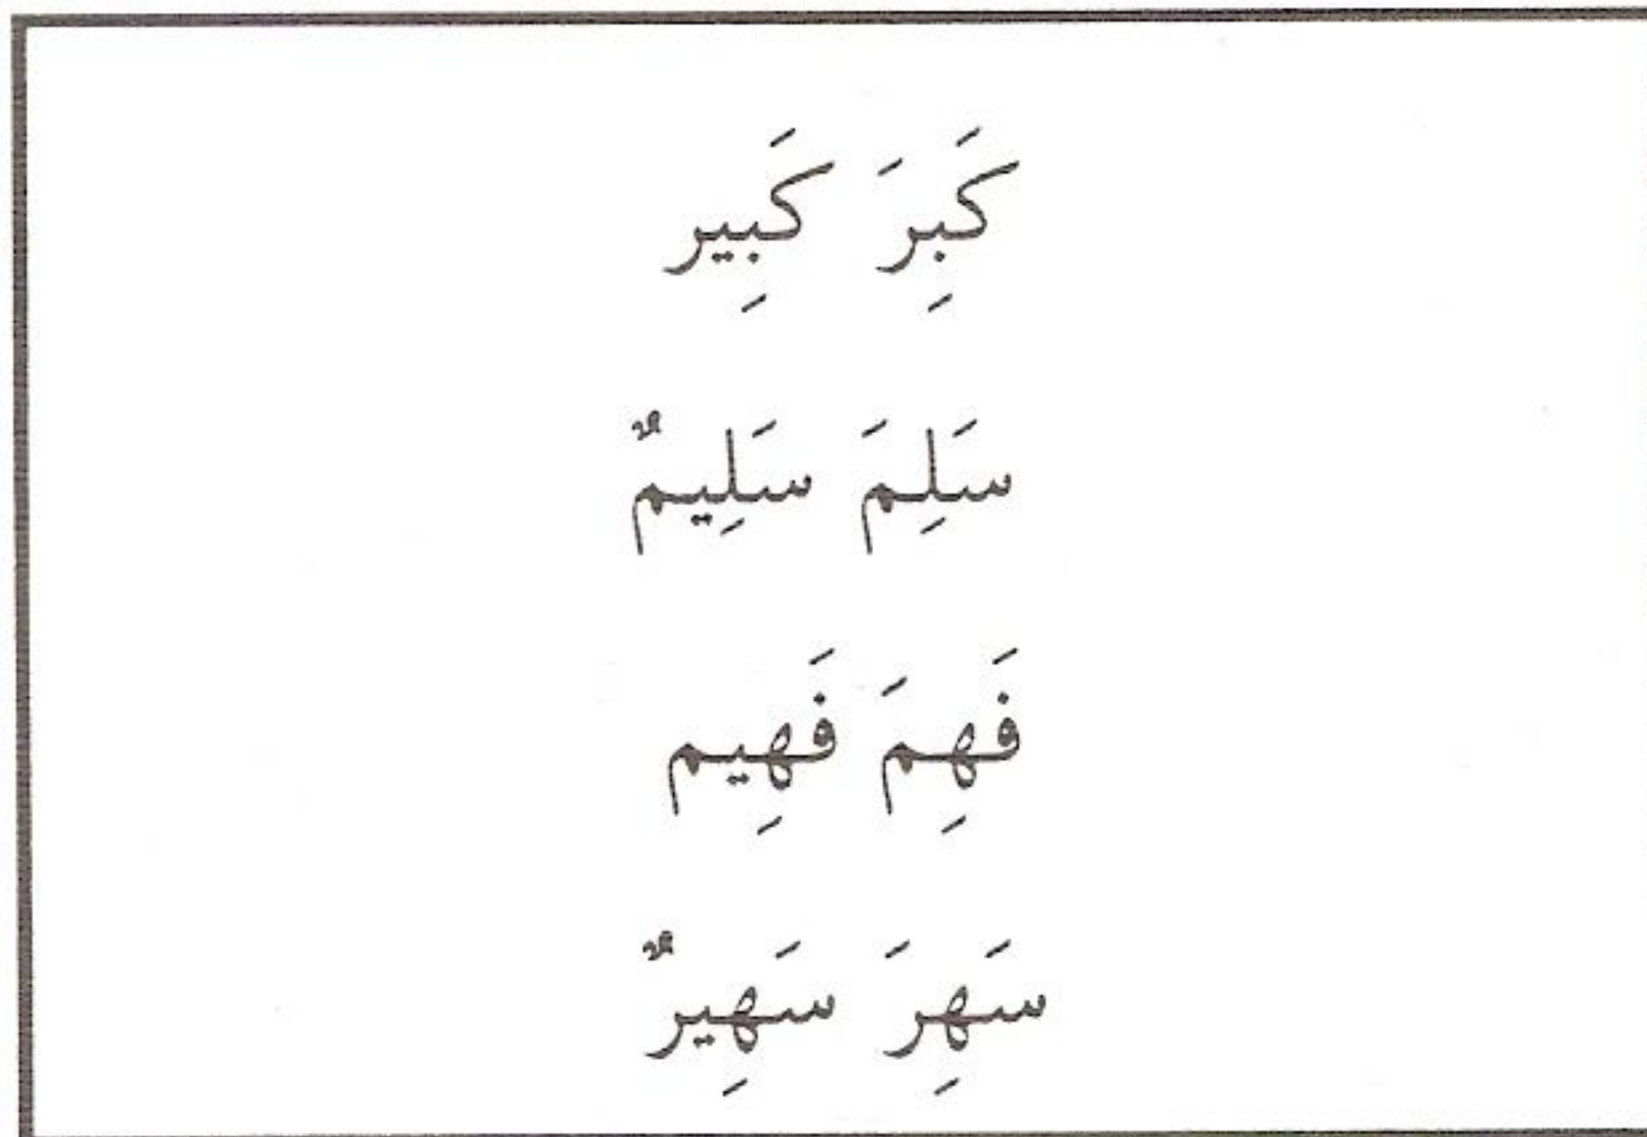 كَبِرَ كَبِير
سَلِمَ سَلِيمٌ
فَهِمَ فَهِيم
سَهِرَ سَهِيرٌ